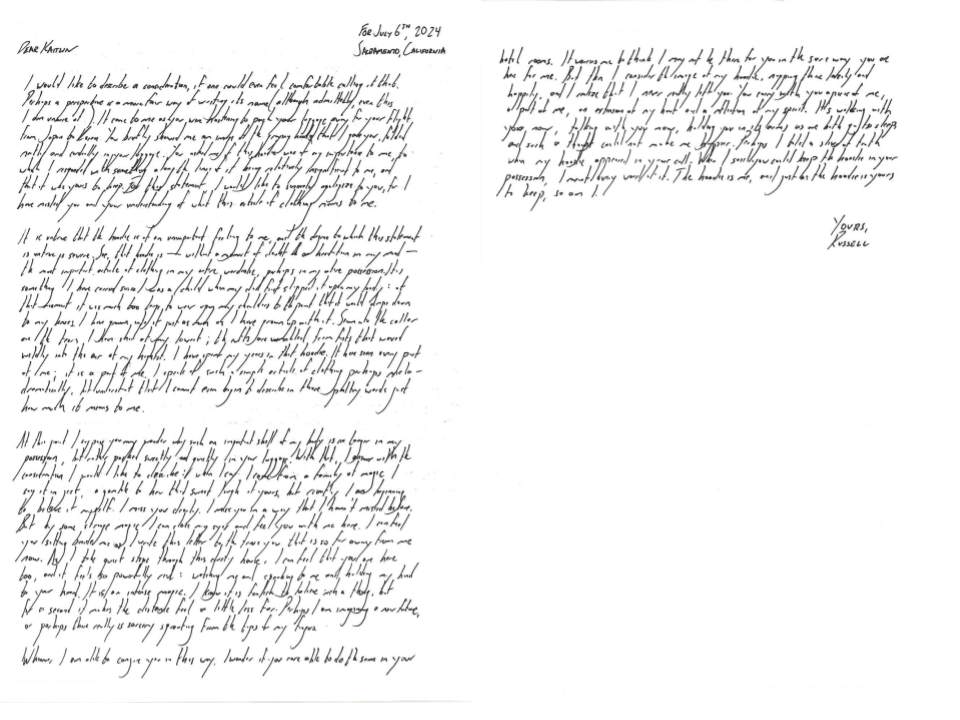 For July 6th, 2024
Sacramento, California
Dear Kaitlin
I would like to describe a consideration, if one could even feel comfortable calling it this.
Perhaps a perspective is a more fair way of writing its name, although admittedly, even this
I am unsure of. It came to me as you was
from to You briefly showed me an image of the hoodie that I gave you, folded
neatly and in your luggage. You
what I responded with something along the lines of it being relatively unimportant to me, and
that it was yours to keep. For this statement, I would like to apologize to you, for I
have misled you and your understanding of what this article of clothing means to me.
It is untrue that the hoodie is of an unimportant feeling to me, and the degree to which this statement
is untrue is severe. See, that hoodie is — without an amount of doubt or hesitation in my mind —
the most important article of clothing in my entire wardrobe, perhaps in my entire possession. It is
something I have since I was a child when my dad first slipped it upon my body: at
that moment it was much too large, to my shoulders to the point that it would drape down
to my knees. I have grown into it just as much as I have grown up with it. Sewn into the collar
are the tears I have shed at my lowest; the cuffs are from fists that waved
wildly into the air at my highest. I have spent my years in that hoodie. It has seen every part
of me; it is a part of me. I speak of such a simple article of clothing perhaps melo-
dramatically, but understand that I cannot even begin to describe in these paltry words just
how much it means to me.
At this point I suppose you may ponder why such an important shell of my body is no longer in my
possession, but rather packed sweetly and quietly in your luggage. With that, I answer with the
consideration I would like to describe: I come from a family of magic. I
say it in jest, to hear that sweet laugh of yours, but recently I am beginning
to believe it myself. I miss you deeply. I miss you in a way that I haven't missed before.
But by some strange magic I can close my eyes and feel you with me here. I can feel
you sitting beside me as I write this letter by the you that is so far away from me
now. As I take quiet steps through this empty house, I can feel that you are here
too, and it feels so powerfully real: watching me and speaking to me and holding my hand
to your hand. It is an intense magic. I know it is foolish to believe such a thing, but
for a second it makes the distance feel a little less far. Perhaps I am imagining a new future,
or perhaps there really is sorcery sprouting from the tips of my fingers.
Whenever I am able to conjure you in this way, I wonder if you are able to do the same in your
hotel rooms. It worries me to think I may not be there for you in the same way you are
here for me. But then I consider the image of my hoodie, there lovely and
happily, and I realize that I never really left you. You carry with you a piece of me,
a part of me, an extension of my heart and a reflection of my spirit. It is walking with
you now, talking with you now, holding you in its arms as we both go to sleep
and such a thought could not make me happier. Perhaps I told a sliver of truth
when my hoodie appeared in your call. When I said you could keep the hoodie in your
possession, I meant every word of it. The hoodie is me, and just as the hoodie is yours
to keep, so am I.
Yours,
Russell